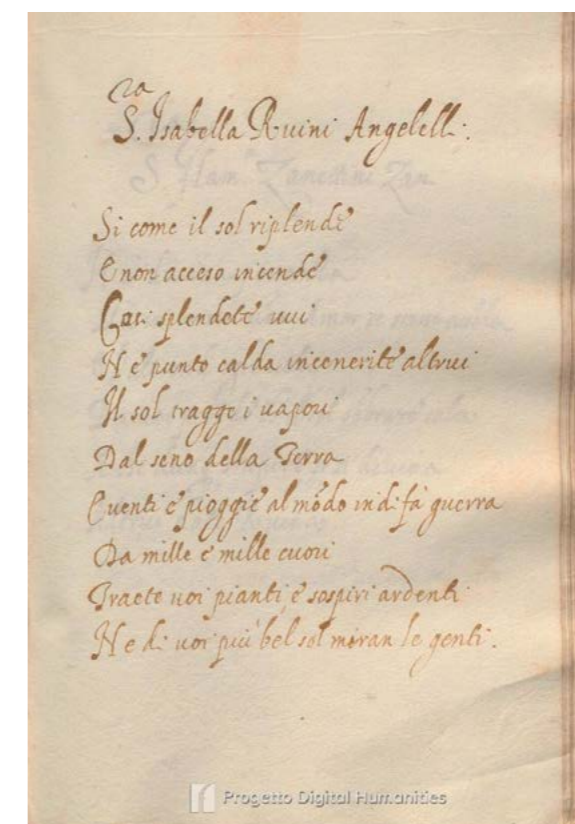 S.ra Isabella Ruini Angelelli.
Si come il sol risplende
E non acceso incende
Cosi splendete uui
Ne punto calda incenerite altrui
Il sol tragge i uapori
Dal seno della Terra
E uenti e pioggie al mōdo indi fà guerra
Da mille e mille cuori
Traete uoi pianti e sospiri ardenti
Ne di uoi più bel sol miran le genti.
Progetto Digital Humanities